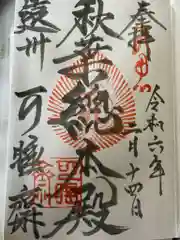 奉拝
令和六年
二月十四日
秋葉總本殿
遠州
可睡齋